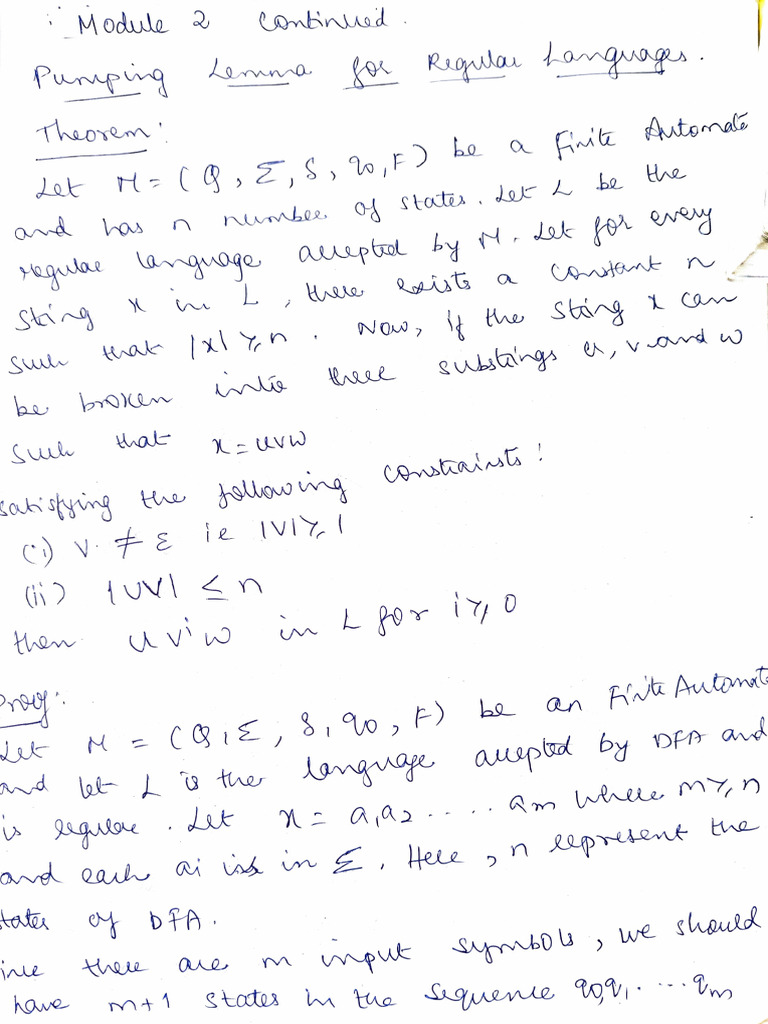 Module 2 Continued.
Pumping Lemma for Regular Languages.
Theorem:
Let M = (Q, Σ, δ, q0, F) be a Finite Automata
and has n number of states. Let L be the
regular language accepted by M. Let for every
string x in L, there exists a constant n
such that |x| ≥ n. Now, if the string x can
be broken into three substrings u, v and w
such that x = uvw
satisfying the following constraints:
(i) v ≠ ε ie |v| ≥ 1
(ii) |uv| ≤ n
then uvⁱw in L for i ≥ 0
Proof:
Let M = (Q, Σ, δ, q0, F) be an Finite Automata
and let L is the language accepted by DFA and
is regular. Let x = a1a2 ..... am where m ≥ n
and each ai is in Σ. Here, n represent the
states of DFA.
ince there are m input symbols, we should
have m+1 states in the sequence q0q1.....qm